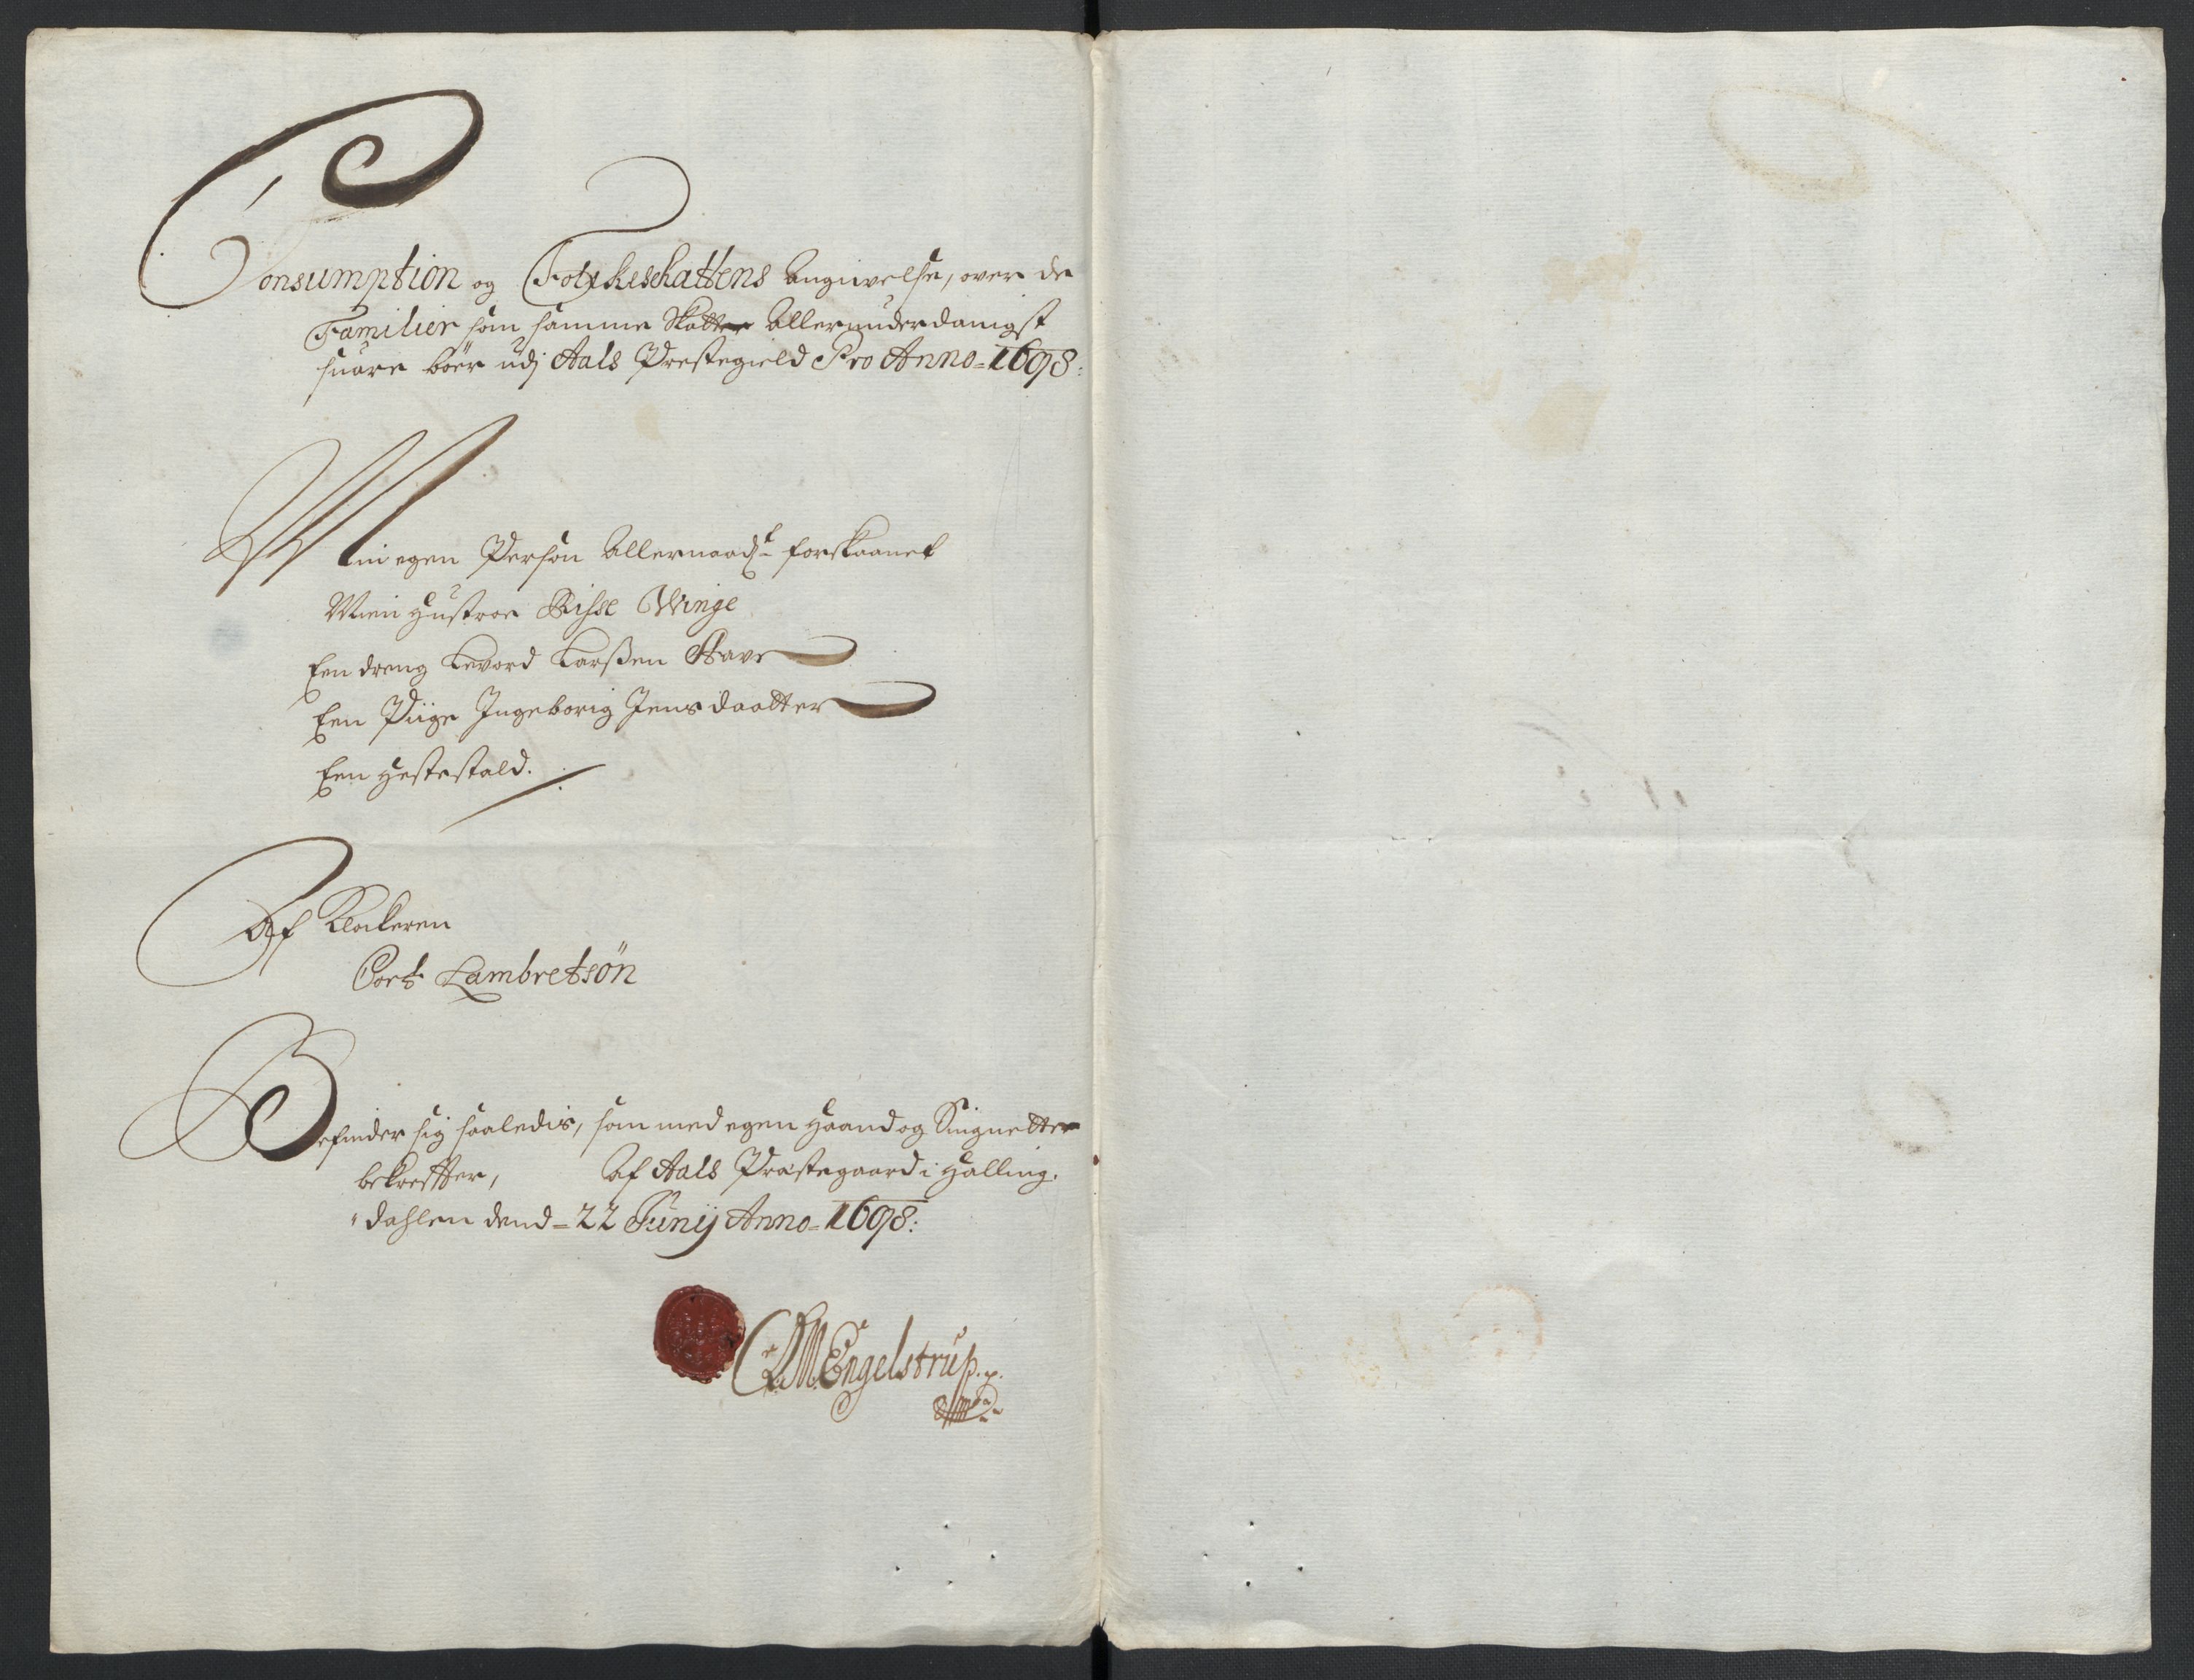 Consumption og Folkeschattens Angiivelse, over de
Familier som samme Skatter Allerunderdanigst
suare bör udj Aals Prestegield Pro Anno = 1698:
Min egen Person Allernaadst forskaanet
Mien Hustroe Sisse Winge
Een dreng Levord Larßen
Een Piige Ingeborig Jensdaatter
Een Hestestald.
Af Klockeren
Cort Lambretsön
Befinder sig saaledis, som med egen Haand og Signetter
bekreffter, Af Aals Præstegaard i Halling,
dahlen dend = 22 Junij Anno = 1698:
Engelstrup.